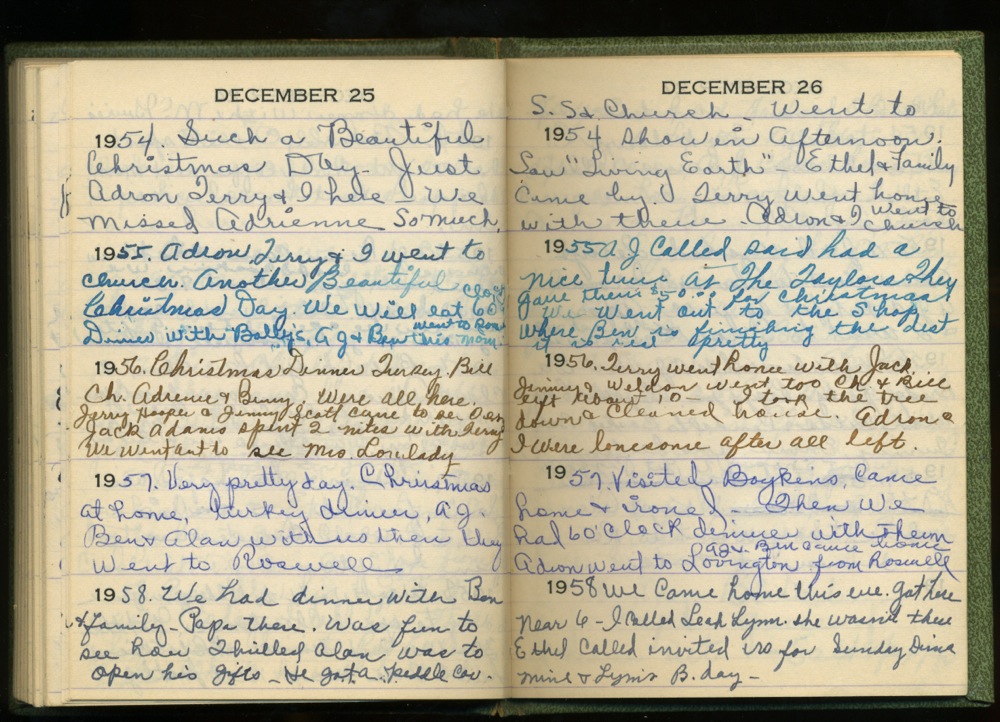 DECEMBER 25
1954. Such a Beautiful
Christmas Day - Just
Adron Terry & I here - We
missed Adrienne So much.
1955. Adron, Terry & I went to
church. Another Beautiful
Christmas Day. We will eat 6 o'clock
Dinner With Bobby's, A J & Ben went to
1956. Christmas Dinner Turkey. Bill
Ch. Adrienne & Benny. Were all here.
Jerry Hooper & Jimmy Scott came to see
Jack Adams spent 2 nites with Terry
We went out to see Mrs. Lovelady
1957. Very pretty day. Christmas
at home, turkey dinner, A J
Ben & Alan with us then they
went to Roswell
1958. We had dinner with Ben
& family - Papa there. Was fun to
see how Thrilled Alan was to
open his gifts - He got a Peddle Car.
DECEMBER 26
S. S. & Church - Went to
1954 show in afternoon.
Saw "Living Earth" - Ethel & Family
Came by. Terry went home
with them Adron & I went to
church
1955 A J Called said had a
nice time at The Taylors & They
gave them $50.00 for Christmas
We Went out to the Shop
where Ben is finishing the
it is real pretty
1956. Terry went home with Jack.
Jimmy & Weldon went too Ch. & Bill
left about 10 - I took the tree
down & Cleaned house. Adron &
I were lonesome after all left.
1957. Visited Boykens, Came
home & ironed - Then We
had 6 o'clock dinner with them
AJ & Ben came home
Adron went to Lovington from Roswell
1958 We Came home this eve. got here
near 6 - I Called Leah Lynn she wasn't there
Ethel Called invited us for Sunday Dinner
mine & Lynn's B. day -